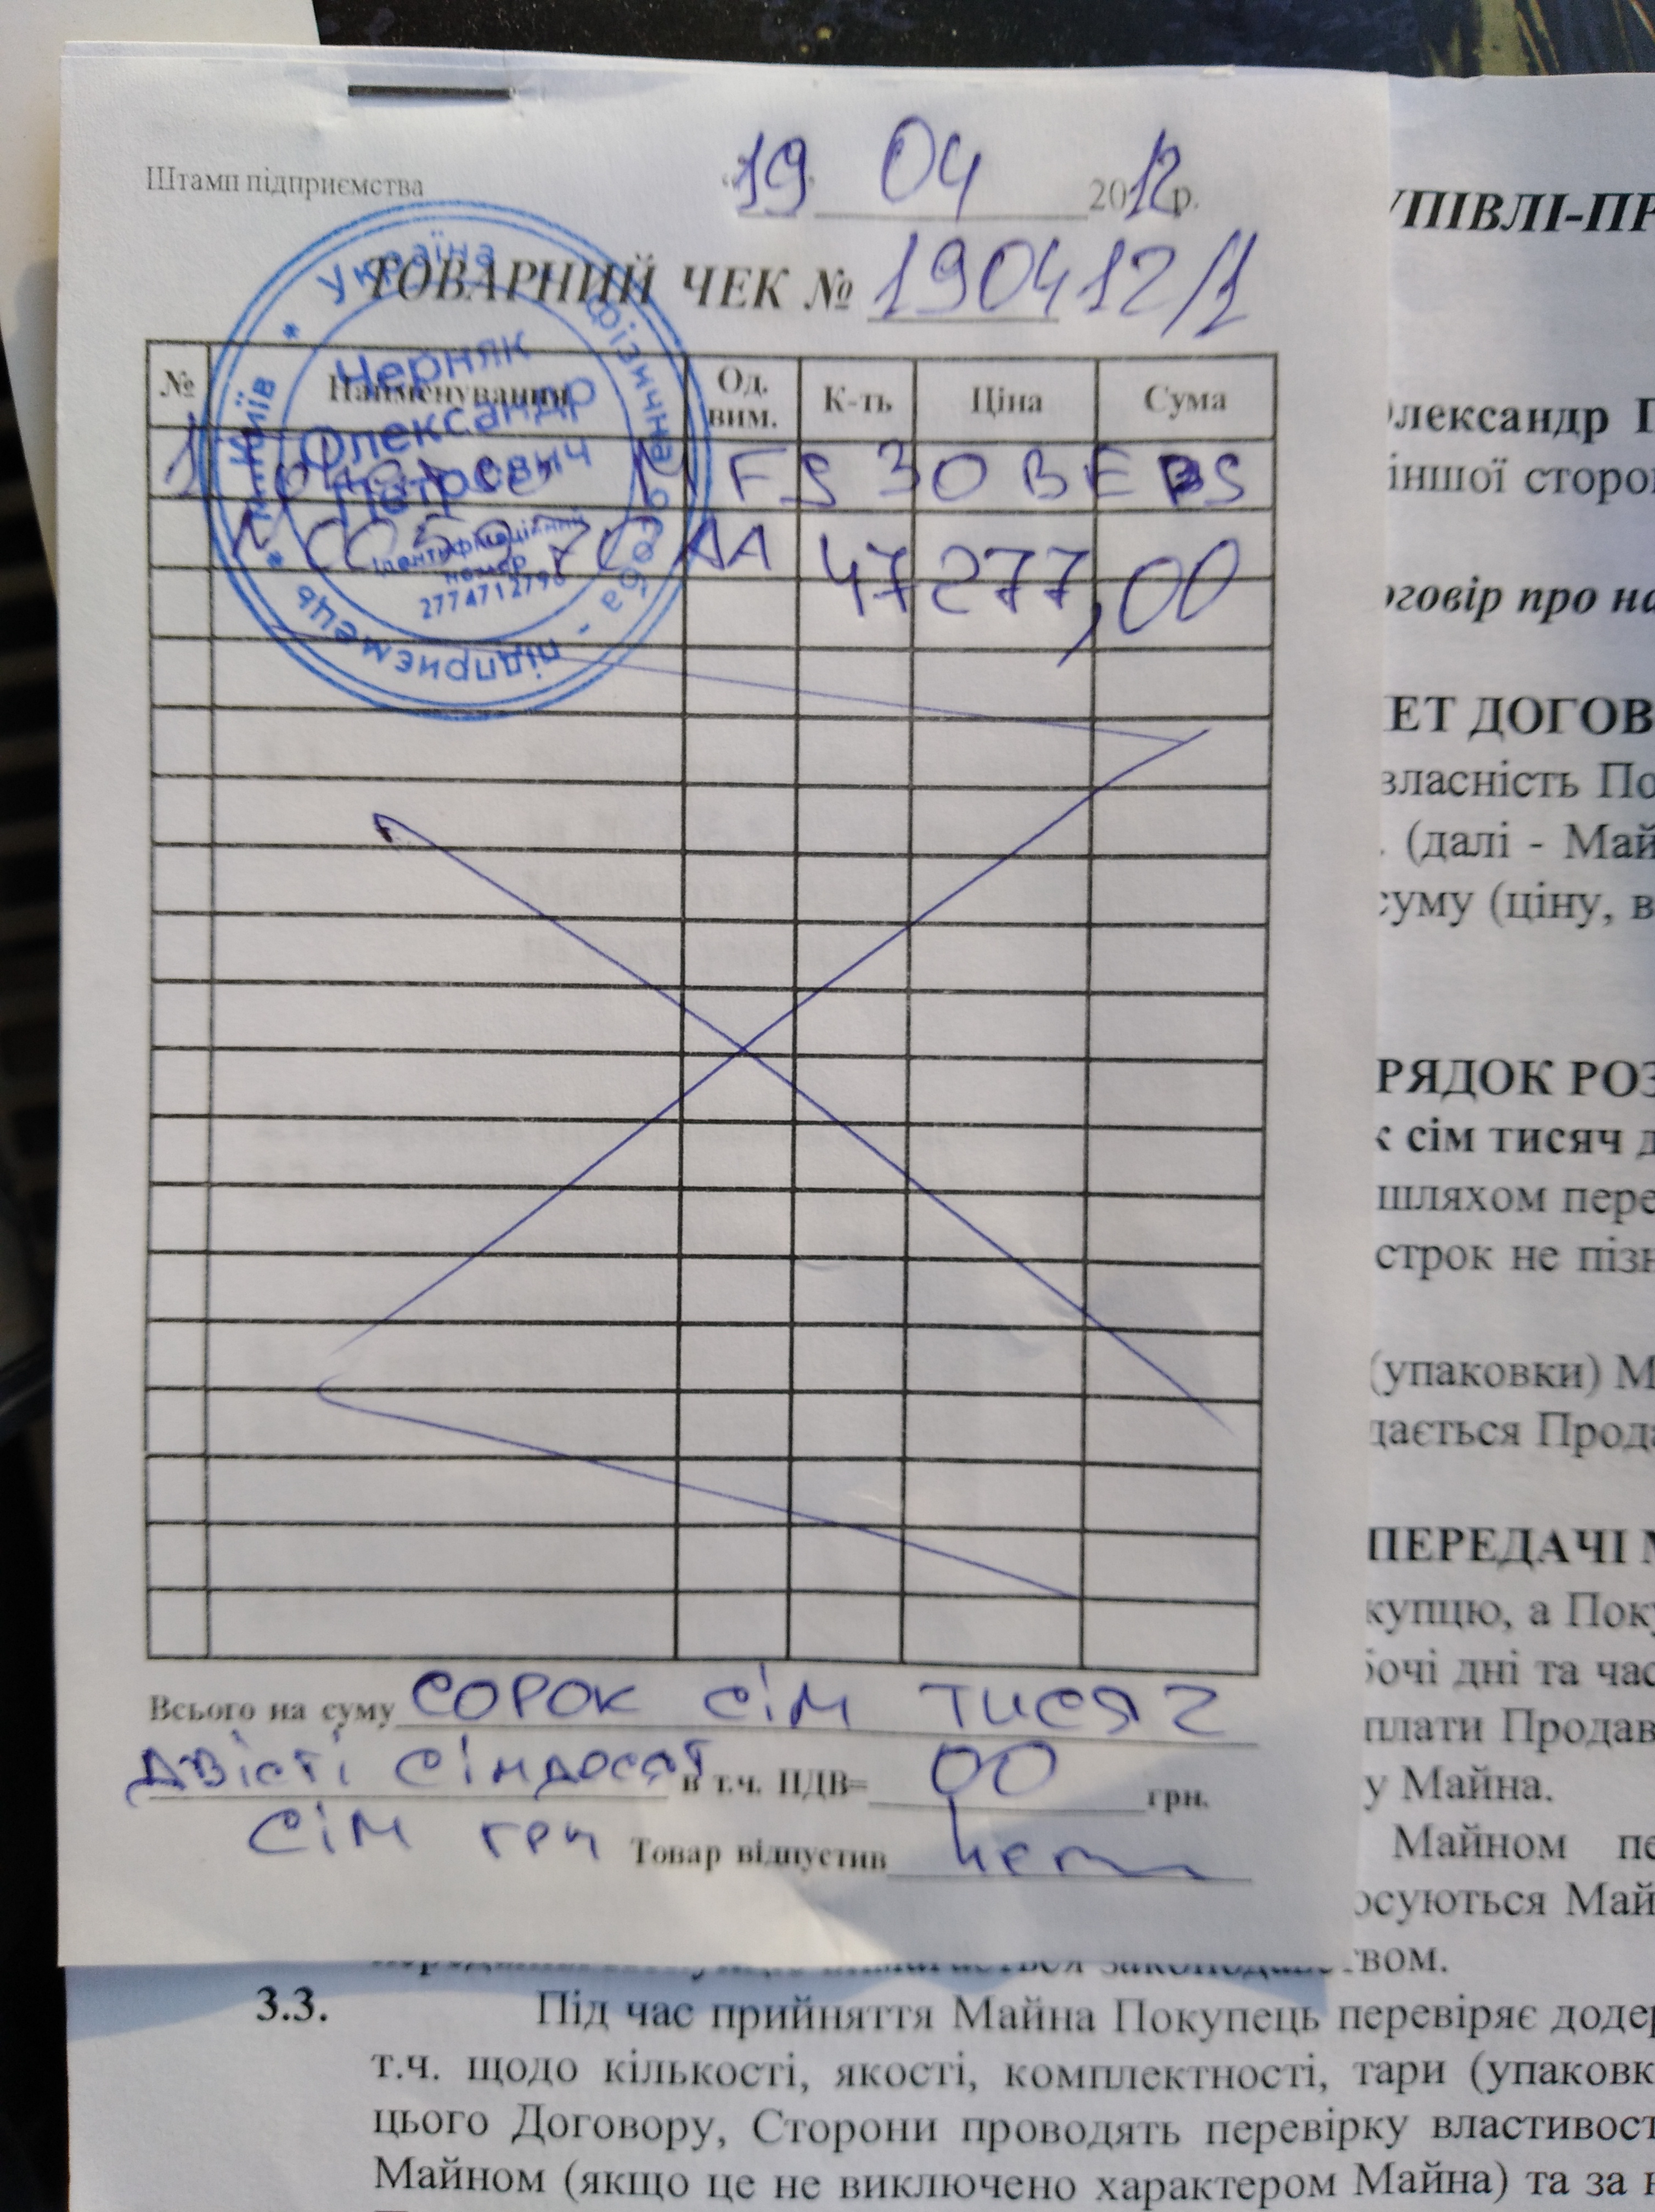 Штамп підприємства
«19» 04 2012 р.
ТОВАРНИЙ ЧЕК № 190412/1
Україна * фізична особа - підприємець * м. Київ *
Черняк
Олександр
Петрович
ідентифікаційний
номер
№ Найменування Од. вим. К-ть Ціна Сума
1 M FS 30 BEPS
AA 47277,00
Всього на суму сорок сім тисяч
двісті сімдесят в т.ч. ПДВ= 00 грн.
сім грн Товар відпустив
УПІВЛІ-ПР
Олександр П
іншої сторо
оговір про на
ЕТ ДОГОВ
власність По
. (далі - Май
суму (ціну, в
РЯДОК РОЗ
к сім тисяч д
шляхом пере
строк не пізн
(упаковки) М
дається Прода
ПЕРЕДАЧІ
купцю, а Поку
бочі дні та час
плати Продав
у Майна.
Майном пе
осуються Май
твом.
3.3. Під час прийняття Майна Покупець перевіряє додер
т.ч. щодо кількості, якості, комплектності, тари (упаковк
цього Договору, Сторони проводять перевірку властивост
Майном (якщо це не виключено характером Майна) та за н